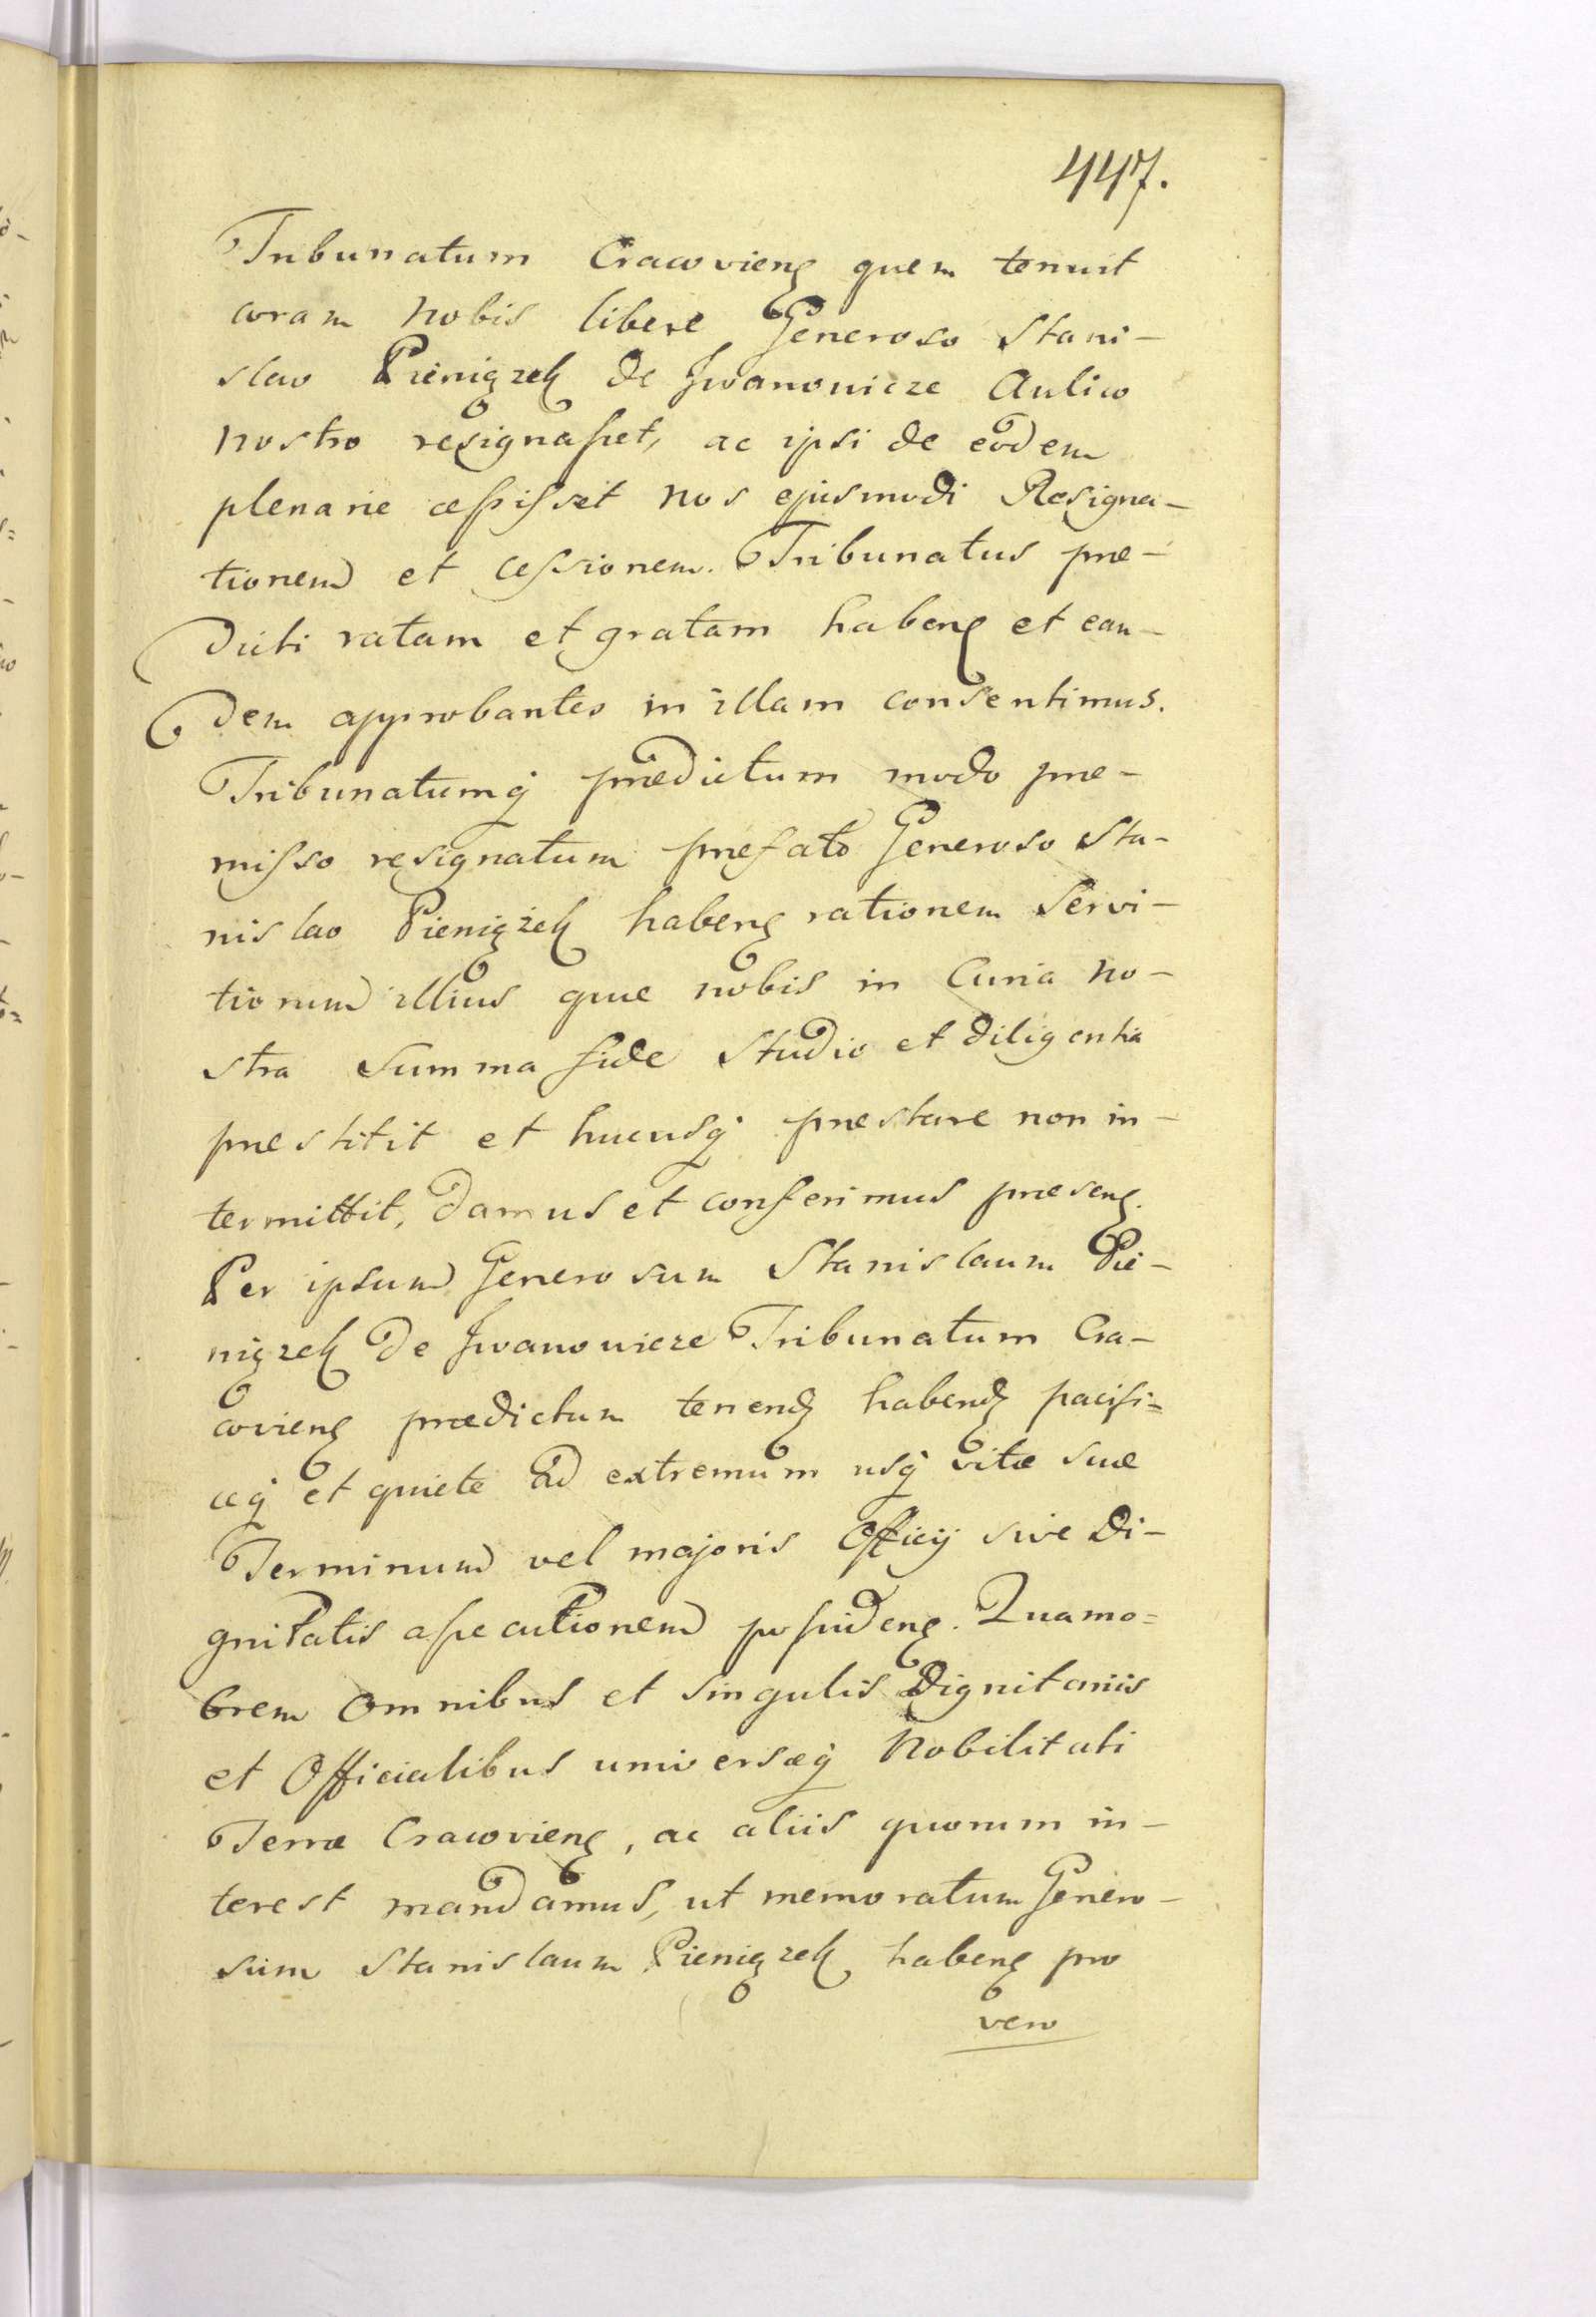 447.
Tribunatum Cracovieng quem tenuit
coram Nobis libere Generoso Stani-
slao Pieniązek de Jwanowicze Aulico
nostro resignaſset, ac ipsi de eodem
plenarie ceſsiſset Nos ejusmodi Resigna-
tionem et ceſsionem. Tribunatus præ-
dicti ratam et gratam habeng et ean-
dem approbantes in illam consentimus.
Tribunatumq; prædictum modo præ-
miſso resignatum præfato Generoso Sta-
nislao Pieniążek habeng rationem Servi-
tiorum illius quæ nobis in Curia No-
stra Summa fide Studio et diligentia
præstitit et hucusq; præstare non in-
termittit, damus et conferimus præseng.
Per ipsum Generosum Stanislaum Pie-
niązek de Jwanowicze Tribunatum Cra-
covieng prædictum tenendg habendg pacifi=
ceq; et quiete Ad extremum usq; vitæ suæ
Terminum vel majoris Officij sive Di-
gnitatis aſsecutionem poſsideng. Quamo=
brem Omnibus et singulis Dignitariis
et Officialibus universæq; Nobilitati
Terræ Cracovieng, ac aliis quorum in-
terest mandamus, ut memoratum Genero-
sum Stanislaum Pieniązek habeng pro
vero